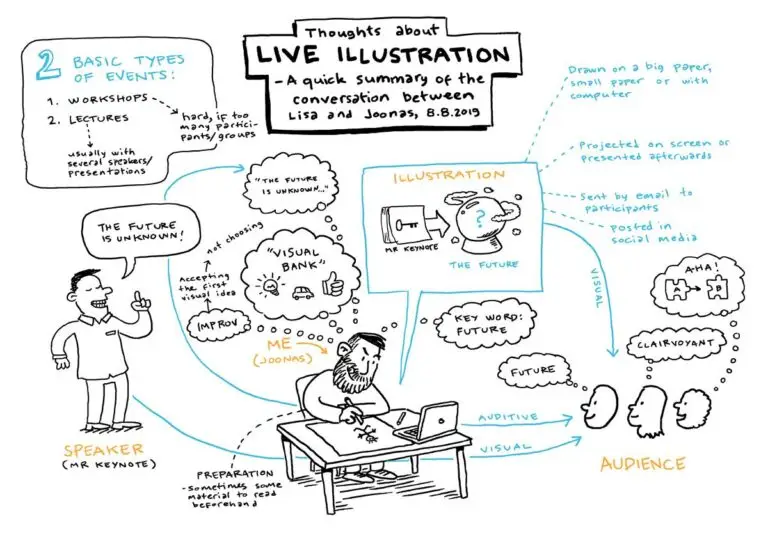 Thoughts about
LIVE ILLUSTRATION
- A quick summary of the
conversation between
Lisa and Joonas, 8.8.2019
2 BASIC TYPES
OF EVENTS:
1. WORKSHOPS
2. LECTURES
hard, if too
many partici-
pants/groups
usually with
several speakers/
presentations
THE FUTURE
IS UNKNOWN!
SPEAKER
(MR KEYNOTE)
"THE FUTURE
IS UNKNOWN..."
"VISUAL
BANK"
not choosing
Accepting
the first
visual idea
IMPROV
ME
(JOONAS)
KEY WORD:
FUTURE
PREPARATION
- sometimes some
material to read
beforehand
ILLUSTRATION
?
MR KEYNOTE
THE FUTURE
Drawn on a big paper,
small paper or with
computer
Projected on screen or
presented afterwards
Sent by email to
participants
posted in
social media
VISUAL
AHA!
A
B
CLAIRVOYANT
FUTURE
AUDITIVE
VISUAL
AUDIENCE